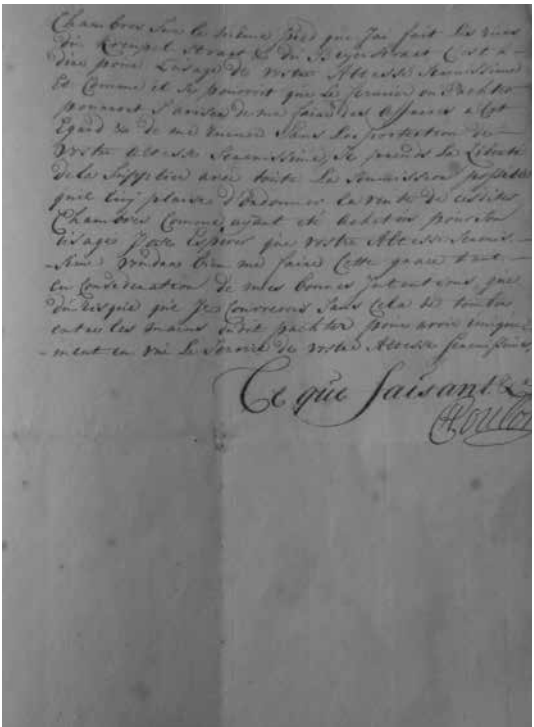 Chambres sur le même pied que J'ai fait les unes
du Krempel Straet & du Beyerstraet C'est a
dire pour L'usage de votre Altesse Serenissime
Et Comme il se pourroit que le fermier ou Pachter
pourroit s'aviser de me faire des affaires a Cet
Egard & de me ruiner Sans La protection de
Votre Altesse Serenissime, Je prends La Liberté
de La Supplier avec toute La Soumission possible
qu'il Luy plaise d'Ordonner la vente de cesdites
Chambres Comme ayant eté achetées pour Son
usage J'ose Esperer que votre Altesse Serenis-
-sime voudra bien me faire Cette grace tant
en Consideration de mes bonnes Intentions, que
du risque que Je Courrerois Sans Cela de tomber
entre les mains dudit pachter pour avoir unique-
-ment en vue Le Service de votre Altesse Serenissime,
Ce que faisant &a